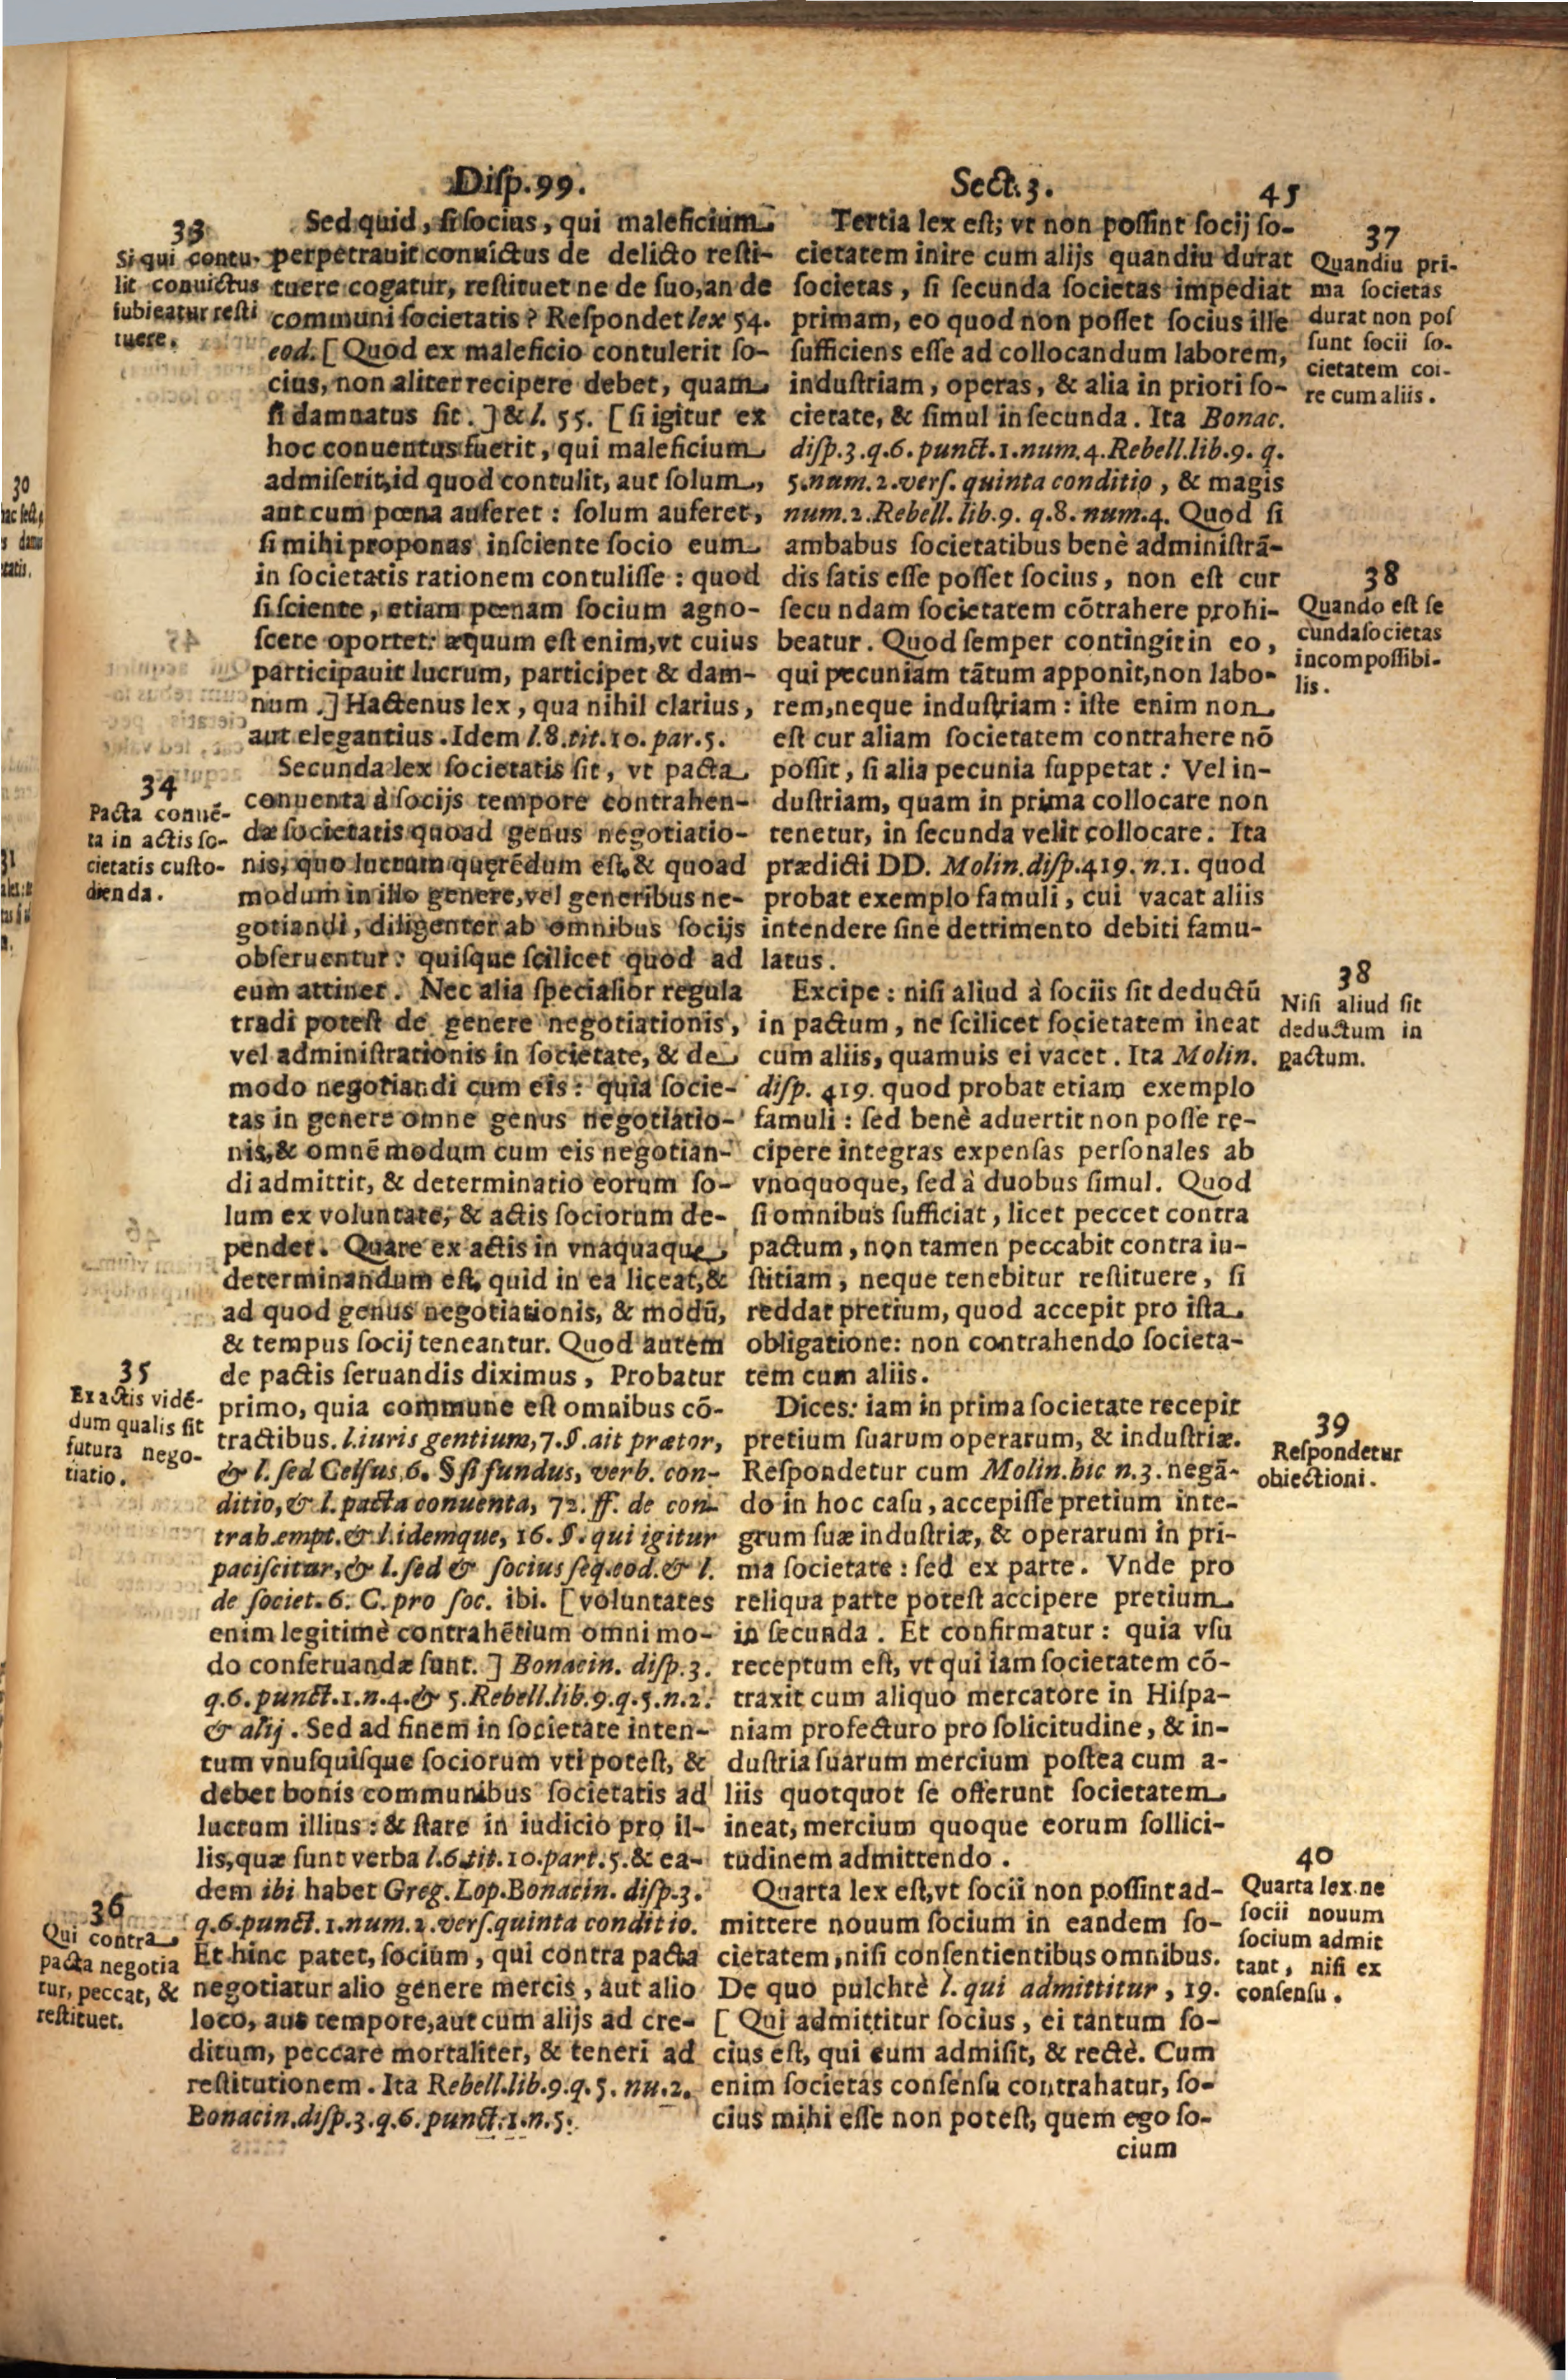 Disp.99.
Sect.3.
45
33
Si qui contu-
lit conuictus
iubeatur resti
tuere.
Sed quid, si socius, qui maleficium
perpetrauit conuictus de delicto resti-
tuere cogatur, restituet ne de suo, an de
communi societatis? Respondet lex 54.
eod. [Quod ex maleficio contulerit so-
cius, non aliter recipere debet, quam
si damnatus sit.] & l. 55. [si igitur ex
hoc conuentus fuerit, qui maleficium
admiserit, id quod contulit, aut solum,
aut cum pœna auferet: solum auferet,
si mihi proponas insciente socio eum
in societatis rationem contulisse: quod
si sciente, etiam pœnam socium agno-
scere oportet: æquum est enim, vt cuius
participauit lucrum, participet & dam-
num.] Hactenus lex, qua nihil clarius,
aut elegantius. Idem l.8.tit.10.par.5.
34
Pacta conuē-
ta in actis so-
cietatis custo-
dienda.
Secunda lex societatis sit, vt pacta
conuenta à socijs tempore contrahen-
dæ societatis quoad genus negotiatio-
nis, quo lucrum quęrēdum est, & quoad
modum in illo genere, vel generibus ne-
gotiandi, diligenter ab omnibus socijs
obseruentur: quisque scilicet quod ad
eum attinet. Nec alia specialior regula
tradi potest de genere negotiationis,
vel administrationis in societate, & de
modo negotiandi cum eis: quia socie-
tas in genere omne genus negotiatio-
nis, & omnē modum cum eis negotian-
di admittit, & determinatio eorum so-
lum ex voluntate, & actis sociorum de-
pendet. Quare ex actis in vnaquaque
determinandum est, quid in ea liceat, &
ad quod genus negotiationis, & modū,
& tempus socij teneantur. Quod autem
de pactis seruandis diximus, Probatur
35
Ex actis vidē-
dum qualis sit
futura nego-
tiatio.
primo, quia commune est omnibus cō-
tractibus. l.iuris gentium, 7.§.ait prætor,
& l. sed Celsus, 6. § si fundus, verb. con-
ditio, & l. pacta conuenta, 72. ff. de con-
trah.empt. & l.idemque, 16. §. qui igitur
paciscitur, & l. sed & socius seq.eod. & l.
de societ. 6. C. pro soc. ibi. [voluntates
enim legitimè contrahētium omni mo-
do conseruandæ sunt.] Bonacin. disp.3.
q.6.punct.1.n.4.& 5.Rebell.lib.9.q.5.n.2.
& alij. Sed ad finem in societate inten-
tum vnusquisque sociorum vti potest, &
debet bonis communibus societatis ad
lucrum illius: & stare in iudicio pro il-
lis, quæ sunt verba l.6.tit.10.part.5.& ea-
dem ibi habet Greg. Lop.Bonacin. disp.3.
q.6.punct.1.num.2.vers.quinta conditio.
36
Qui contra
pacta negotia
tur, peccat, &
restituet.
Et hinc patet, socium, qui contra pacta
negotiatur alio genere mercis, aut alio
loco, aut tempore, aut cum alijs ad cre-
ditum, peccare mortaliter, & teneri ad
restitutionem. Ita Rebell.lib.9.q.5. nu.2.
Bonacin.disp.3.q.6.punct.1.n.5.
Tertia lex est; vt non possint socij so-
cietatem inire cum alijs quandiu durat
societas, si secunda societas impediat
primam, eo quod non posset socius ille
sufficiens esse ad collocandum laborem,
industriam, operas, & alia in priori so-
cietate, & simul in secunda. Ita Bonac.
disp.3.q.6.punct.1.num.4.Rebell.lib.9. q.
5.num.2.vers. quinta conditio, & magis
num.2.Rebell. lib.9. q.8. num.4. Quod si
ambabus societatibus benè administrā-
dis satis esse posset socius, non est cur
secundam societatem cōtrahere prohi-
beatur. Quod semper contingit in eo,
qui pecuniam tātum apponit, non labo-
rem, neque industriam: iste enim non
est cur aliam societatem contrahere nō
possit, si alia pecunia suppetat: Vel in-
dustriam, quam in prima collocare non
tenetur, in secunda velit collocare. Ita
prædicti DD. Molin.disp.419. n.1. quod
probat exemplo famuli, cui vacat aliis
intendere sine detrimento debiti famu-
latus.
37
Quandiu pri-
ma societas
durat non pos
sunt socii so-
cietatem coi-
re cum aliis.
38
Quando est se
cunda societas
incompossibi-
lis.
Excipe: nisi aliud à sociis sit deductū
in pactum, ne scilicet societatem ineat
cum aliis, quamuis ei vacet. Ita Molin.
disp. 419. quod probat etiam exemplo
famuli: sed benè aduertit non posse re-
cipere integras expensas personales ab
vnoquoque, sed à duobus simul. Quod
si omnibus sufficiat, licet peccet contra
pactum, non tamen peccabit contra iu-
stitiam, neque tenebitur restituere, si
reddat pretium, quod accepit pro ista
obligatione: non contrahendo societa-
tem cum aliis.
38
Nisi aliud sit
deductum in
pactum.
Dices: iam in prima societate recepit
pretium suarum operarum, & industriæ.
Respondetur cum Molin.hic n.3. negā-
do in hoc casu, accepisse pretium inte-
grum suæ industriæ, & operarum in pri-
ma societate: sed ex parte. Vnde pro
reliqua parte potest accipere pretium
in secunda. Et confirmatur: quia vsu
receptum est, vt qui iam societatem cō-
traxit cum aliquo mercatore in Hispa-
niam profecturo pro solicitudine, & in-
dustria suarum mercium postea cum a-
liis quotquot se offerunt societatem
ineat, mercium quoque eorum sollici-
tudinem admittendo.
39
Respondetur
obiectioni.
Quarta lex est, vt socii non possint ad-
mittere nouum socium in eandem so-
cietatem, nisi consentientibus omnibus.
De quo pulchrè l. qui admittitur, 19.
[Qui admittitur socius, ei tantum so-
cius est, qui eum admisit, & rectè. Cum
enim societas consensu contrahatur, so-
cius mihi esse non potest, quem ego so-
cium
40
Quarta lex ne
socii nouum
socium admit
tant, nisi ex
consensu.